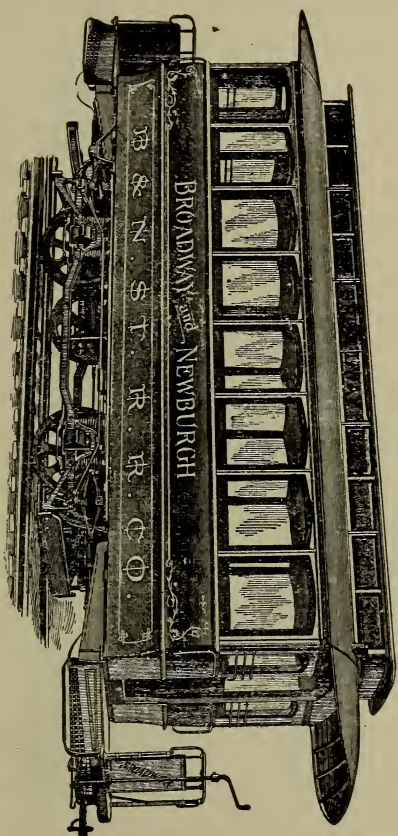 BROADWAY and NEWBURGH
B & N. ST. R. R. CO.